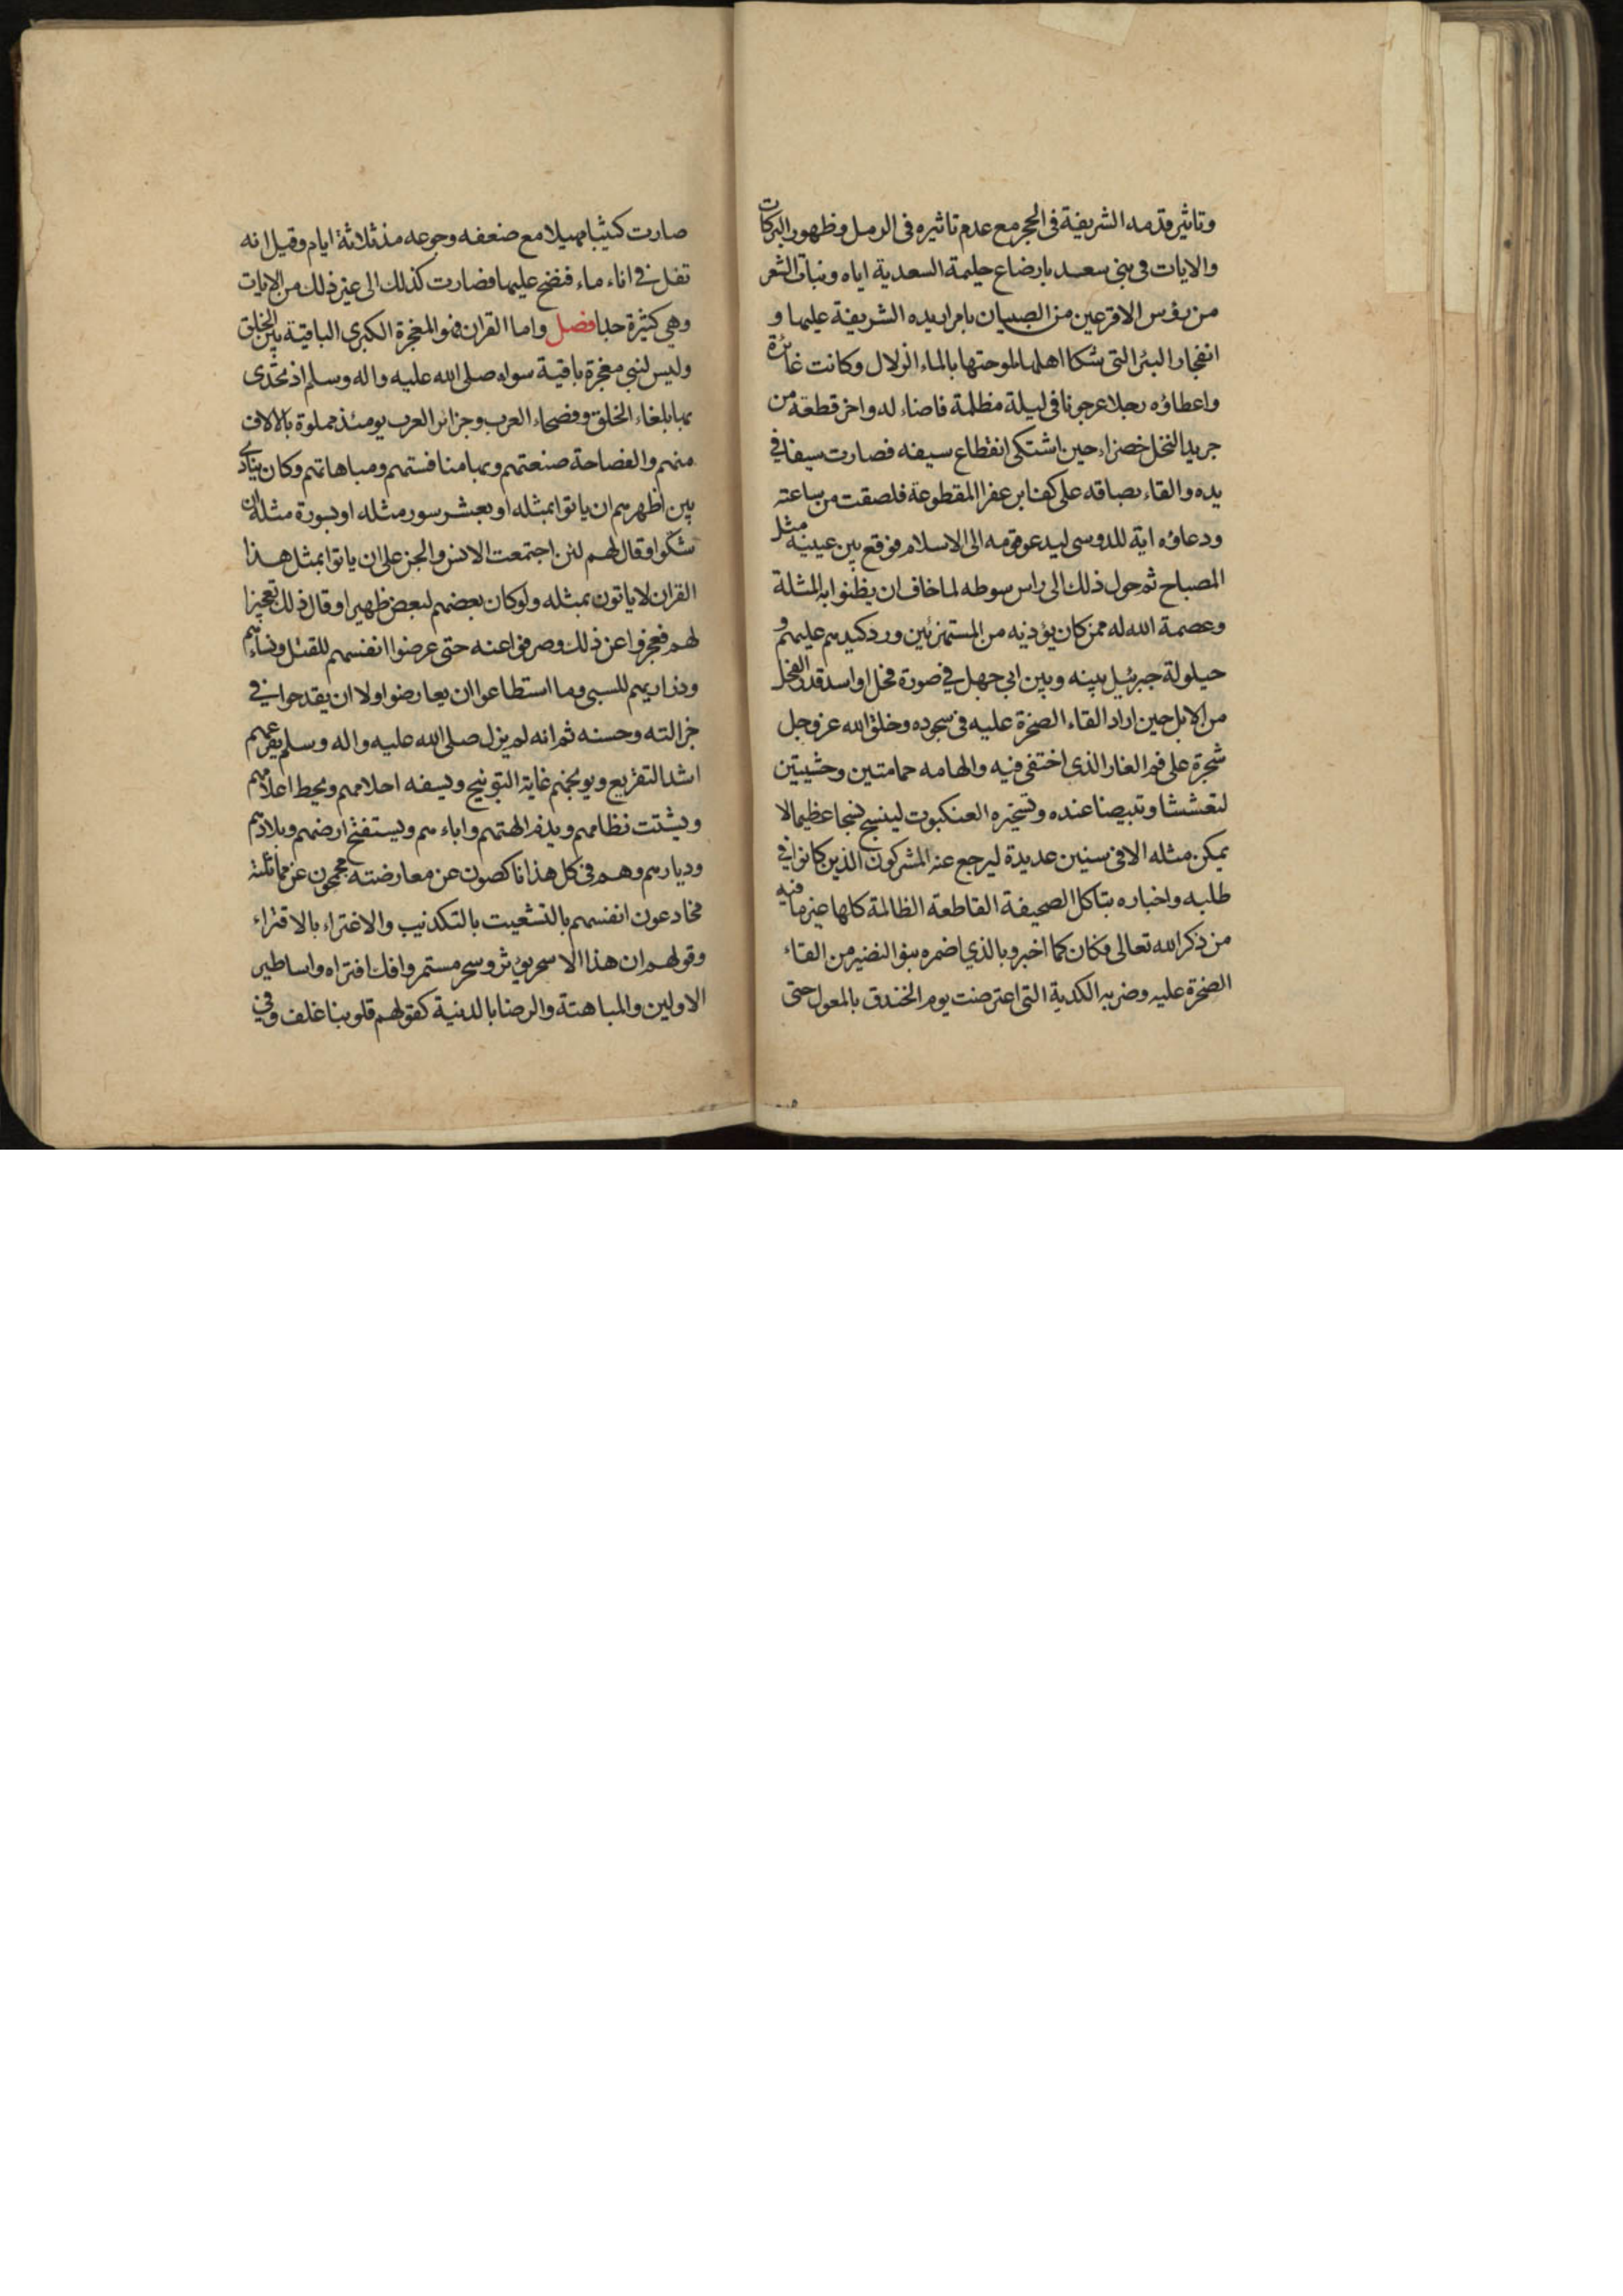 وتاثير قدمه الشريفة فى الحجر مع عدم تاثيره فى الرمل وظهور البركات
والايات فى بنى سعد بارضاع حليمة السعدية اياه ونبات الشعر
من رؤس الاقرعين من الصبيان بامراريده الشريفة عليها و
انفجار البئر التى شكا اهلها ملوحتها بالماء الزلال وكانت غائرة
واعطاؤه رجلا عرجونا فى ليلة مظلمة فاضاء له واخر قطعة من
جريد النخل خضراء حين اشتكى انقطاع سيفه فصارت سيفا في
يده والقاء بصاقه على كف ابن عفرا المقطوعة فلصقت من ساعته
ودعاؤه اية للدوسى ليدعو قومه الى الاسلام فوقع بين عينيه مثل
المصباح ثم حول ذلك الى راس سوطه لما خاف ان يظنوا به المثلة
وعصمة الله له ممن كان يؤذيه من المستهزئين ورد كيدهم عليهم و
حيلولة جبرئيل بينه وبين ابي جهل في صورة فحل او اسد قدر الفحل
من الابل حين اراد القاء الصخرة عليه فى سجوده وخلق الله عز وجل
شجرة على فم الغار الذى اختفى فيه والهامه حمامتين وحشيتين
لتعششا وتبيضا عنده وتسخيره العنكبوت لينسج نسجا عظيما لا
يمكن مثله الا فى سنين عديدة ليرجع عنه المشركون الذين كانوا في
طلبه واخباره بتاكل الصحيفة القاطعة الظالمة كلها غير ما فيه
من ذكر الله تعالى فكان كما اخبر وبالذي اضمره بنو النضير من القاء
الصخرة عليه وضربه الكدية التى اعترضت يوم الخندق بالمعول حتى
صارت كثيبا مهيلا مع ضعفه وجوعه منذ ثلاثة ايام وقيل انه
تفل في اناء ماء فنضح عليها فصارت كذلك الى غير ذلك من الايات
وهي كثيرة جدا فصل واما القران فهو المعجزة الكبرى الباقية بين الخلق
وليس لنبي معجزة باقية سواه صلى الله عليه واله وسلم اذ تحدى
بها بلغاء الخلق وفصحاء العرب وجزائر العرب يومئذ مملوة بالالاف
منهم والفصاحة صنعتهم وبها منافستهم ومباهاتهم وكان ينادى
بين اظهرهم ان ياتوا بمثله او بعشر سور مثله او بسورة مثله ان
شكوا وقال لهم لئن اجتمعت الانس والجن على ان ياتوا بمثل هذا
القران لا ياتون بمثله ولو كان بعضهم لبعض ظهيرا وقال ذلك تعجيزا
لهم فعجزوا عن ذلك وصرفوا عنه حتى عرضوا انفسهم للقتل ونساءهم
وذراريهم للسبى وما استطاعوا ان يعارضوا ولا ان يقدحوا في
جزالته وحسنه ثم انه لم يزل صلى الله عليه واله وسلم يقرعهم
اشد التقريع ويوبخهم غاية التوبيخ ويسفه احلامهم ويحط اعلامهم
ويشتت نظامهم ويذم الهتهم واباءهم ويستفتح ارضهم وبلادهم
وديارهم وهم فى كل هذا ناكصون عن معارضته محجمون عن مماثلته
مخادعون انفسهم بالتشغيب بالتكذيب والاغتراء بالافتراء
وقولهم ان هذا الا سحر يؤثر وسحر مستمر وافك افتراه واساطير
الاولين والمباهتة والرضا بالدنية كقولهم قلوبنا غلف وفي